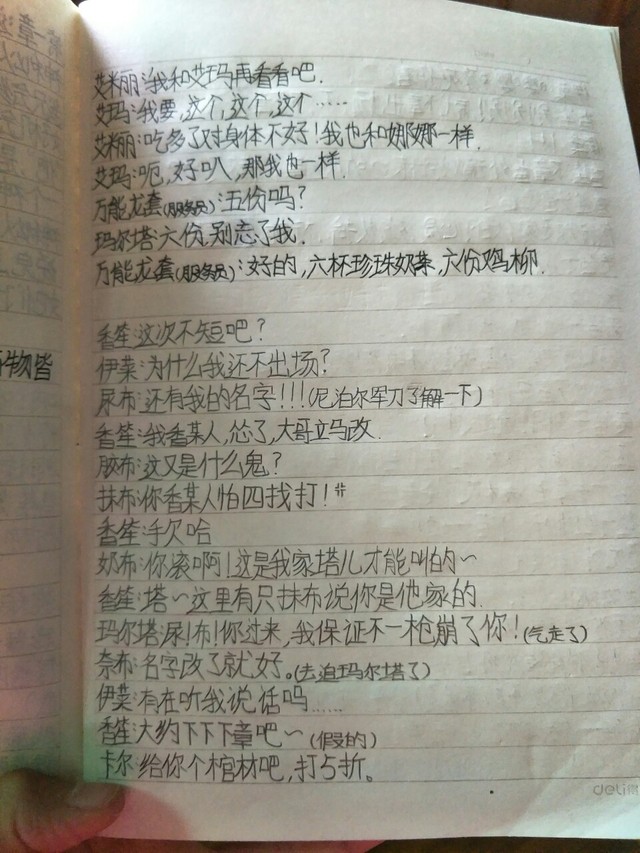 艾米丽:我和艾玛再看看吧.
艾玛:我要,这个,这个,这个……
艾米丽:吃多了对身体不好!我也和娜娜一样.
艾玛:呃,好叭,那我也一样.
万能龙套(服务员):五份吗?
玛尔塔:六份,别忘了我.
万能龙套(服务员):好的,六杯珍珠奶茶,六份鸡柳.
香笙:这次不短吧?
伊菜:为什么我还不出场?
尿布:还有我的名字!!!(尼泊尔军刀了解一下)
香笙:我香某人,怂了,大哥立马改.
胶布:这又是什么鬼?
抹布:你香某人怕四找打!#
香笙:手欠哈
奶布:你滚啊!这是我家塔儿才能叫的~
香笙:塔~这里有只抹布说你是他家的.
玛尔塔:尿!布!你过来,我保证不一枪崩了你!(气走了)
奈布:名字改了就好。(去追玛尔塔了)
伊菜:有在听我说话吗……
香笙:大约下下下章吧~(假的)
卡尔:给你个棺材吧,打5折。
物皆
deli